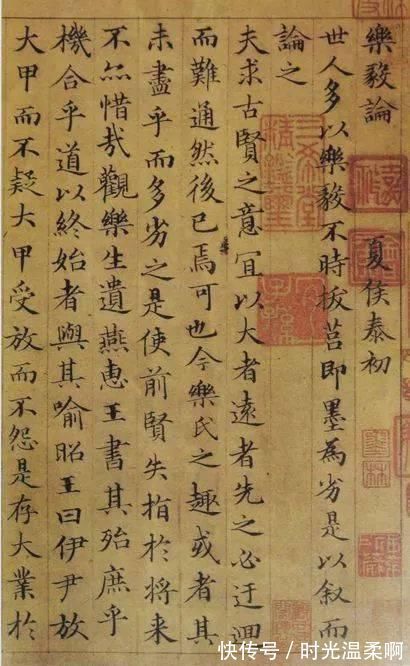 樂毅論 夏侯泰初
世人多以樂毅不時拔莒即墨為劣是以叙而
論之
夫求古賢之意宜以大者遠者先之必迂迴
而難通然後已焉可也今樂氏之趣或者其
未盡乎而多劣之是使前賢失指於將来
不亦惜哉觀樂生遺燕惠王書其殆庶乎
機合乎道以終始者與其喻昭王曰伊尹放
大甲而不疑大甲受放而不怨是存大業於
三希堂精鑑璽
宜子孫
快传号／时光温柔啊